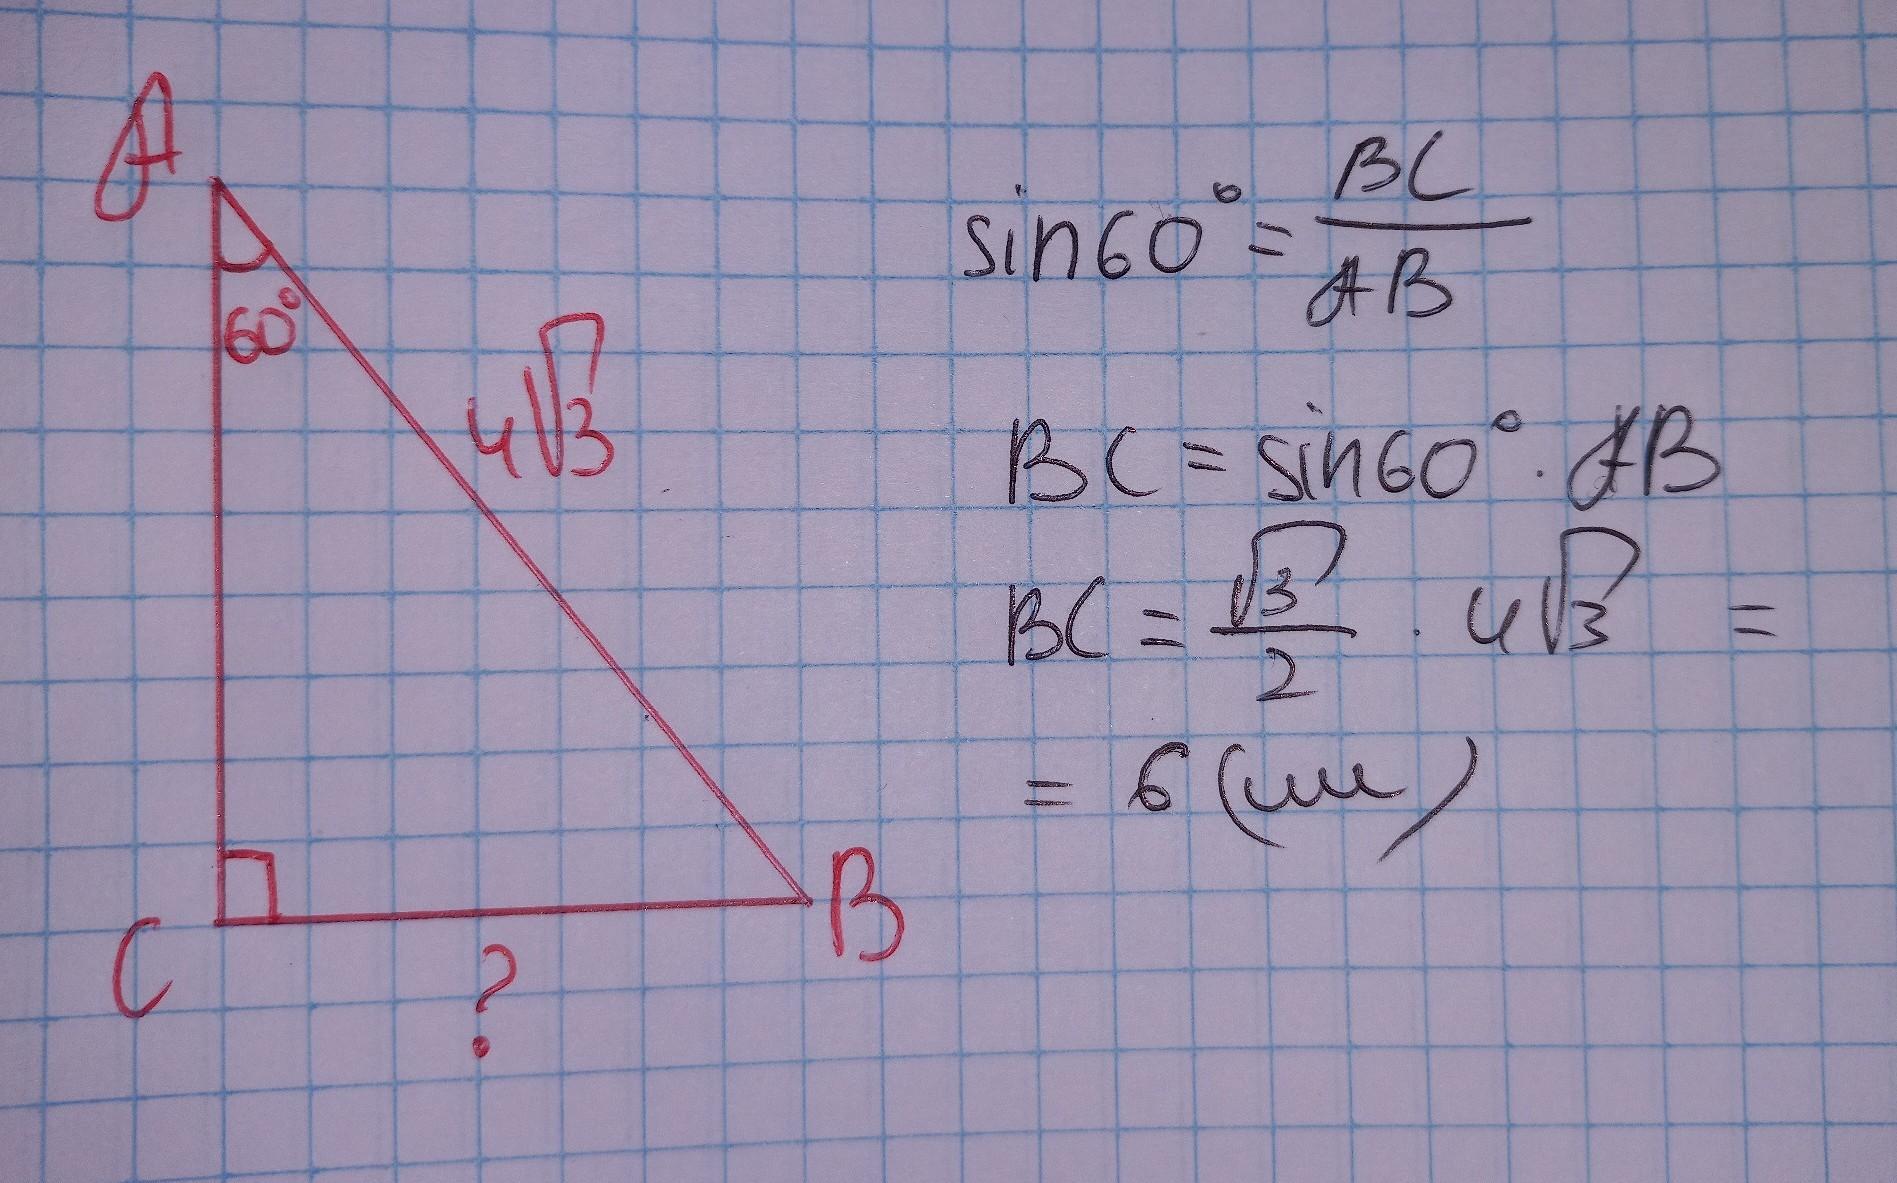 A
60°
4√3
C
B
?
sin60° = BC/AB
BC = sin60° · AB
BC = √3/2 · 4√3 =
= 6 (см)